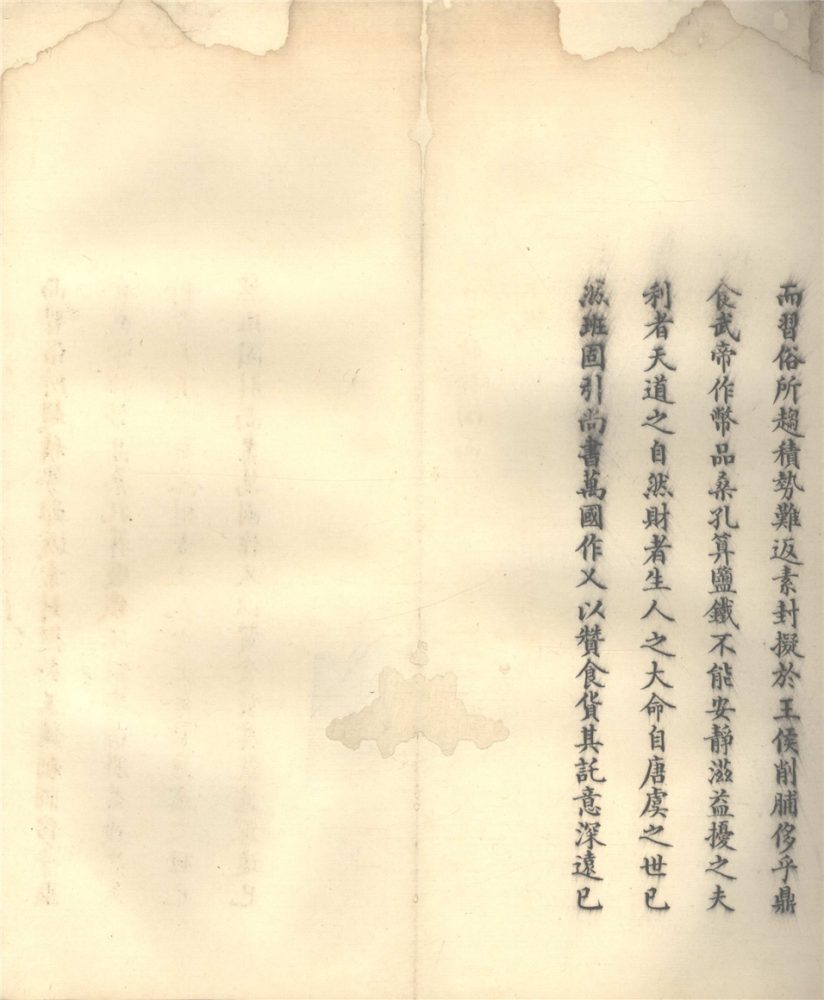 而習俗所趨積勢難返素封擬於王侯削脯侈乎鼎
食武帝作幣品桑孔算鹽鐵不能安靜滋益擾之夫
利者天道之自然財者生人之大命自唐虞之世已
然班固引尚書萬國作乂以贊食貨其託意深遠已